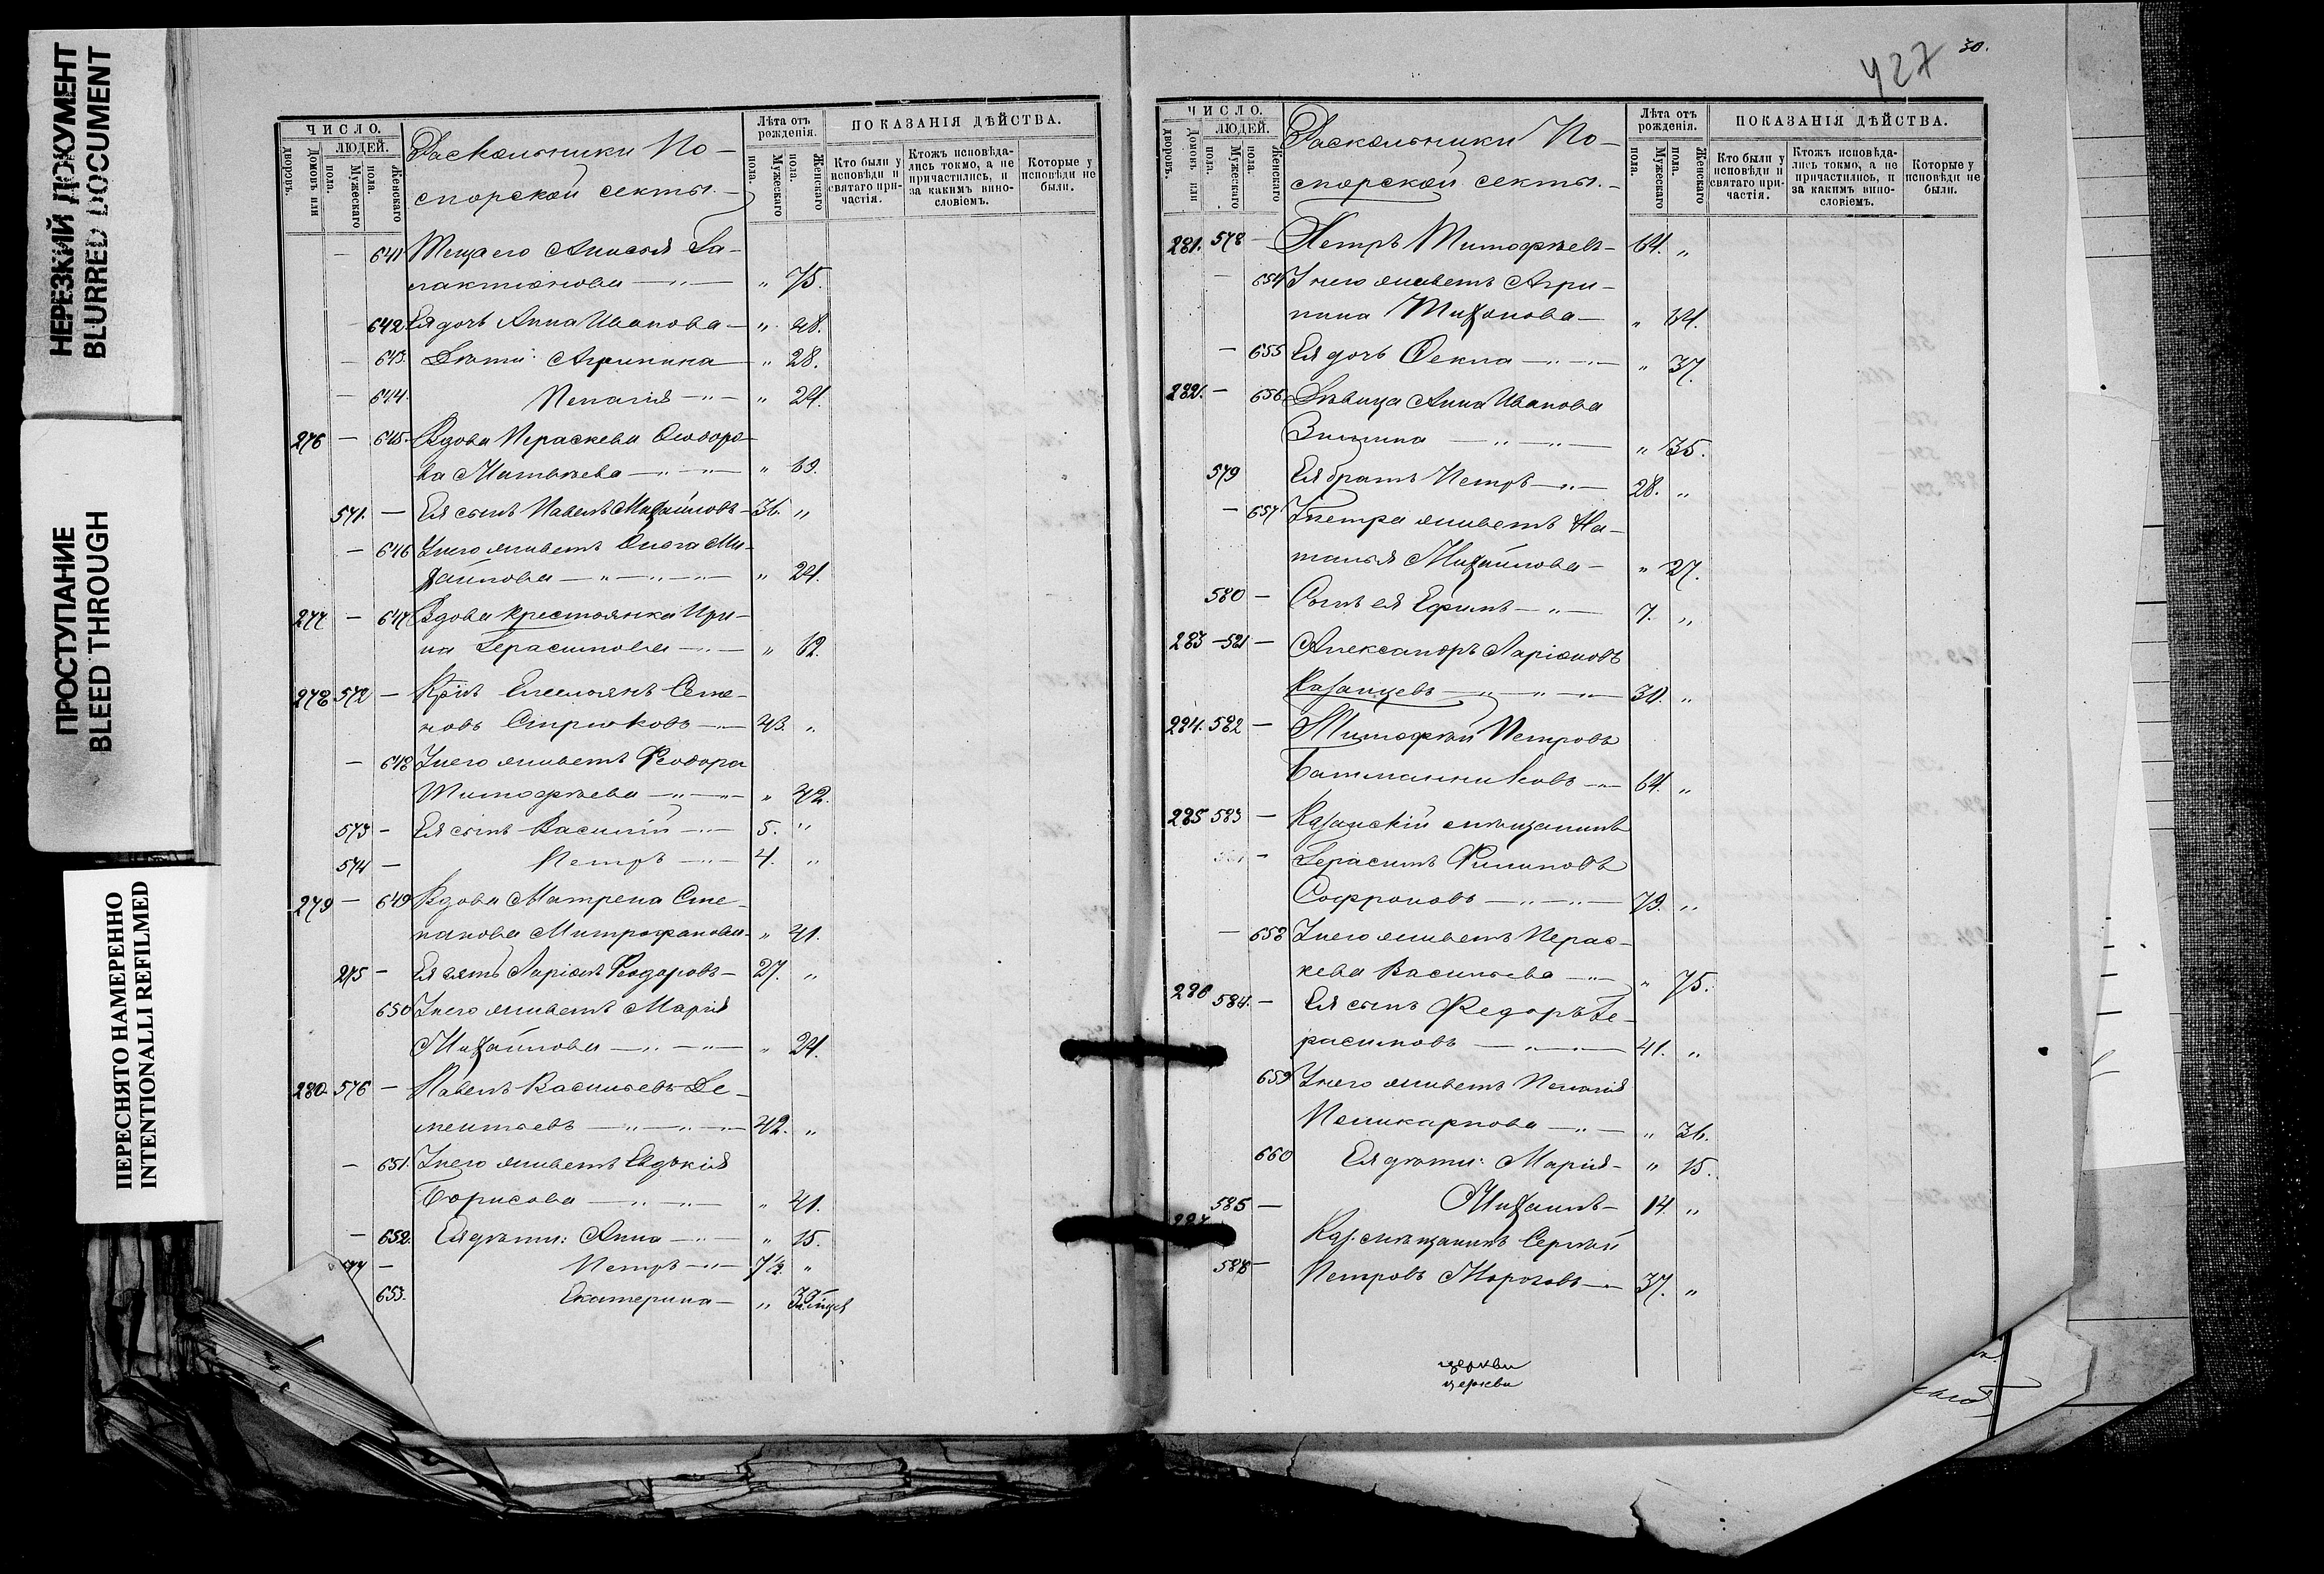 НЕРЕЗКИЙ ДОКУМЕНТ
BLURRED DOCUMENT
ПРОСТУПАНИЕ
BLEED THROUGH
ПЕРЕСНЯТО НАМЕРЕННО
INTENTIONALLI REFILMED
ЧИСЛО.
Домовъ или дворовъ.
ЛЮДЕЙ.
Мужескаго пола.
Женскаго пола.
Раскольники По-
морской секты.
Лѣта отъ рожденія.
Мужескаго пола.
Женскаго пола.
ПОКАЗАНІЯ ДѢЙСТВА.
Кто были у исповѣди и святаго причастія.
Ктожъ исповѣдались токмо, а не причастились, и за какимъ винословіемъ.
Которые у исповѣди не были.
— 641 Теща его Анисья Га-
лактіонова — " — " 75.
— 642. Ея дочь Анна Иванова — " 48.
— 643. Дѣти: Агрипина — " 28.
— 644. Пелагія — " — " 24.
276 — 645. Вдова Параскева Ѳеодоро-
ва Матвѣева — " — " — " 69.
571. — Ея сынъ Павелъ Михайловъ — 36. "
— 646 У него живетъ Ольга Ми-
хайлова — " — " — " — " 24.
277 — 647 Вдова крестьянка Ири-
на Герасимова — " — " 62.
278 572 — Кр-нъ Емельянъ Семе-
новъ Стрижковъ — " — 43. "
— 648 У него живетъ Ѳеодора
Тимофѣева — " — " — " 42.
573 — Ея сынъ Василій — " — 5. "
574 — Петръ — " — 4. "
279 — 649 Вдова Матрена Сте-
панова Митрофанова — " 41.
575 — Ея зять Ларіонъ Ѳеодоровъ — 27. "
650 У него живетъ Марія
Михайлова — " — " — " 24.
280. 576 — Павелъ Васильевъ Де-
ментьевъ — " — " — " — 42. "
— 651. У него живетъ Евдокія
Борисова — " — " — " 41.
— 652. Ея дѣти: Анна — " — " 15.
577 — Петръ — " — 7½. "
653. Екатерина — "
427
30.
ЧИСЛО.
Домовъ или дворовъ.
ЛЮДЕЙ.
Мужескаго пола.
Женскаго пола.
Раскольники По-
морской секты.
Лѣта отъ рожденія.
Мужескаго пола.
Женскаго пола.
ПОКАЗАНІЯ ДѢЙСТВА.
Кто были у исповѣди и святаго причастія.
Ктожъ исповѣдались токмо, а не причастились, и за какимъ винословіемъ.
Которые у исповѣди не были.
281. 578 — Петръ Тимофѣевъ — 64. "
— 654 У него живетъ Агри-
пина Тихонова — " 64.
— 655 Ея дочь Ѳекла — " — " — " 37.
282. — 656. Дѣвица Анна Иванова
Зимина — " — " — " 35.
579 Ея братъ Петръ — " — 28. "
— 657 У Петра живетъ На-
талья Михайлова — " 27.
580 — Сынъ ея Ефимъ — " — 7. "
283 — 581 — Александръ Ларіоновъ
Казанцевъ — " — " — " — 34. "
284. 582 — Тимофѣй Петровъ
64. "
285 583 — Казанскій мѣщанинъ
Герасимъ Филиповъ
Софроновъ — " — " — 79. "
— 658 У него живетъ Парас-
кева Васильева — " — " 75.
286 584. — Ея сынъ Федоръ Ге-
расимовъ — " — " — 41. "
659 У него живетъ Пелагія
Поликарпова — " — " 36.
660 Ея дѣти: Марія — " 15.
585 — Михаилъ — 14. "
287 Каз. мѣщанинъ Сергѣй
586 — Петровъ Морозовъ — " — 37. "
церкви
церкви